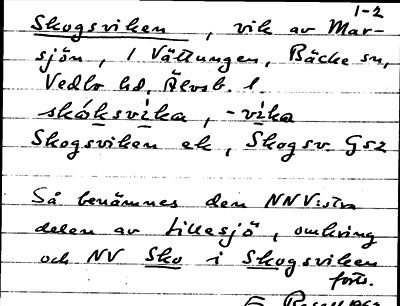 1-2
Skogsviken, vik av Mar-
sjön, i Vättungen, Bäcke sn,
Vedbo hd, Älvsb. l.
skóksvíka, -víka
Skogsviken ek, Skogsv. Gsz
Så benämnes den NNV:stra
delen av Lillesjö, omkring
och NV Sko i Skogsviken
forts.